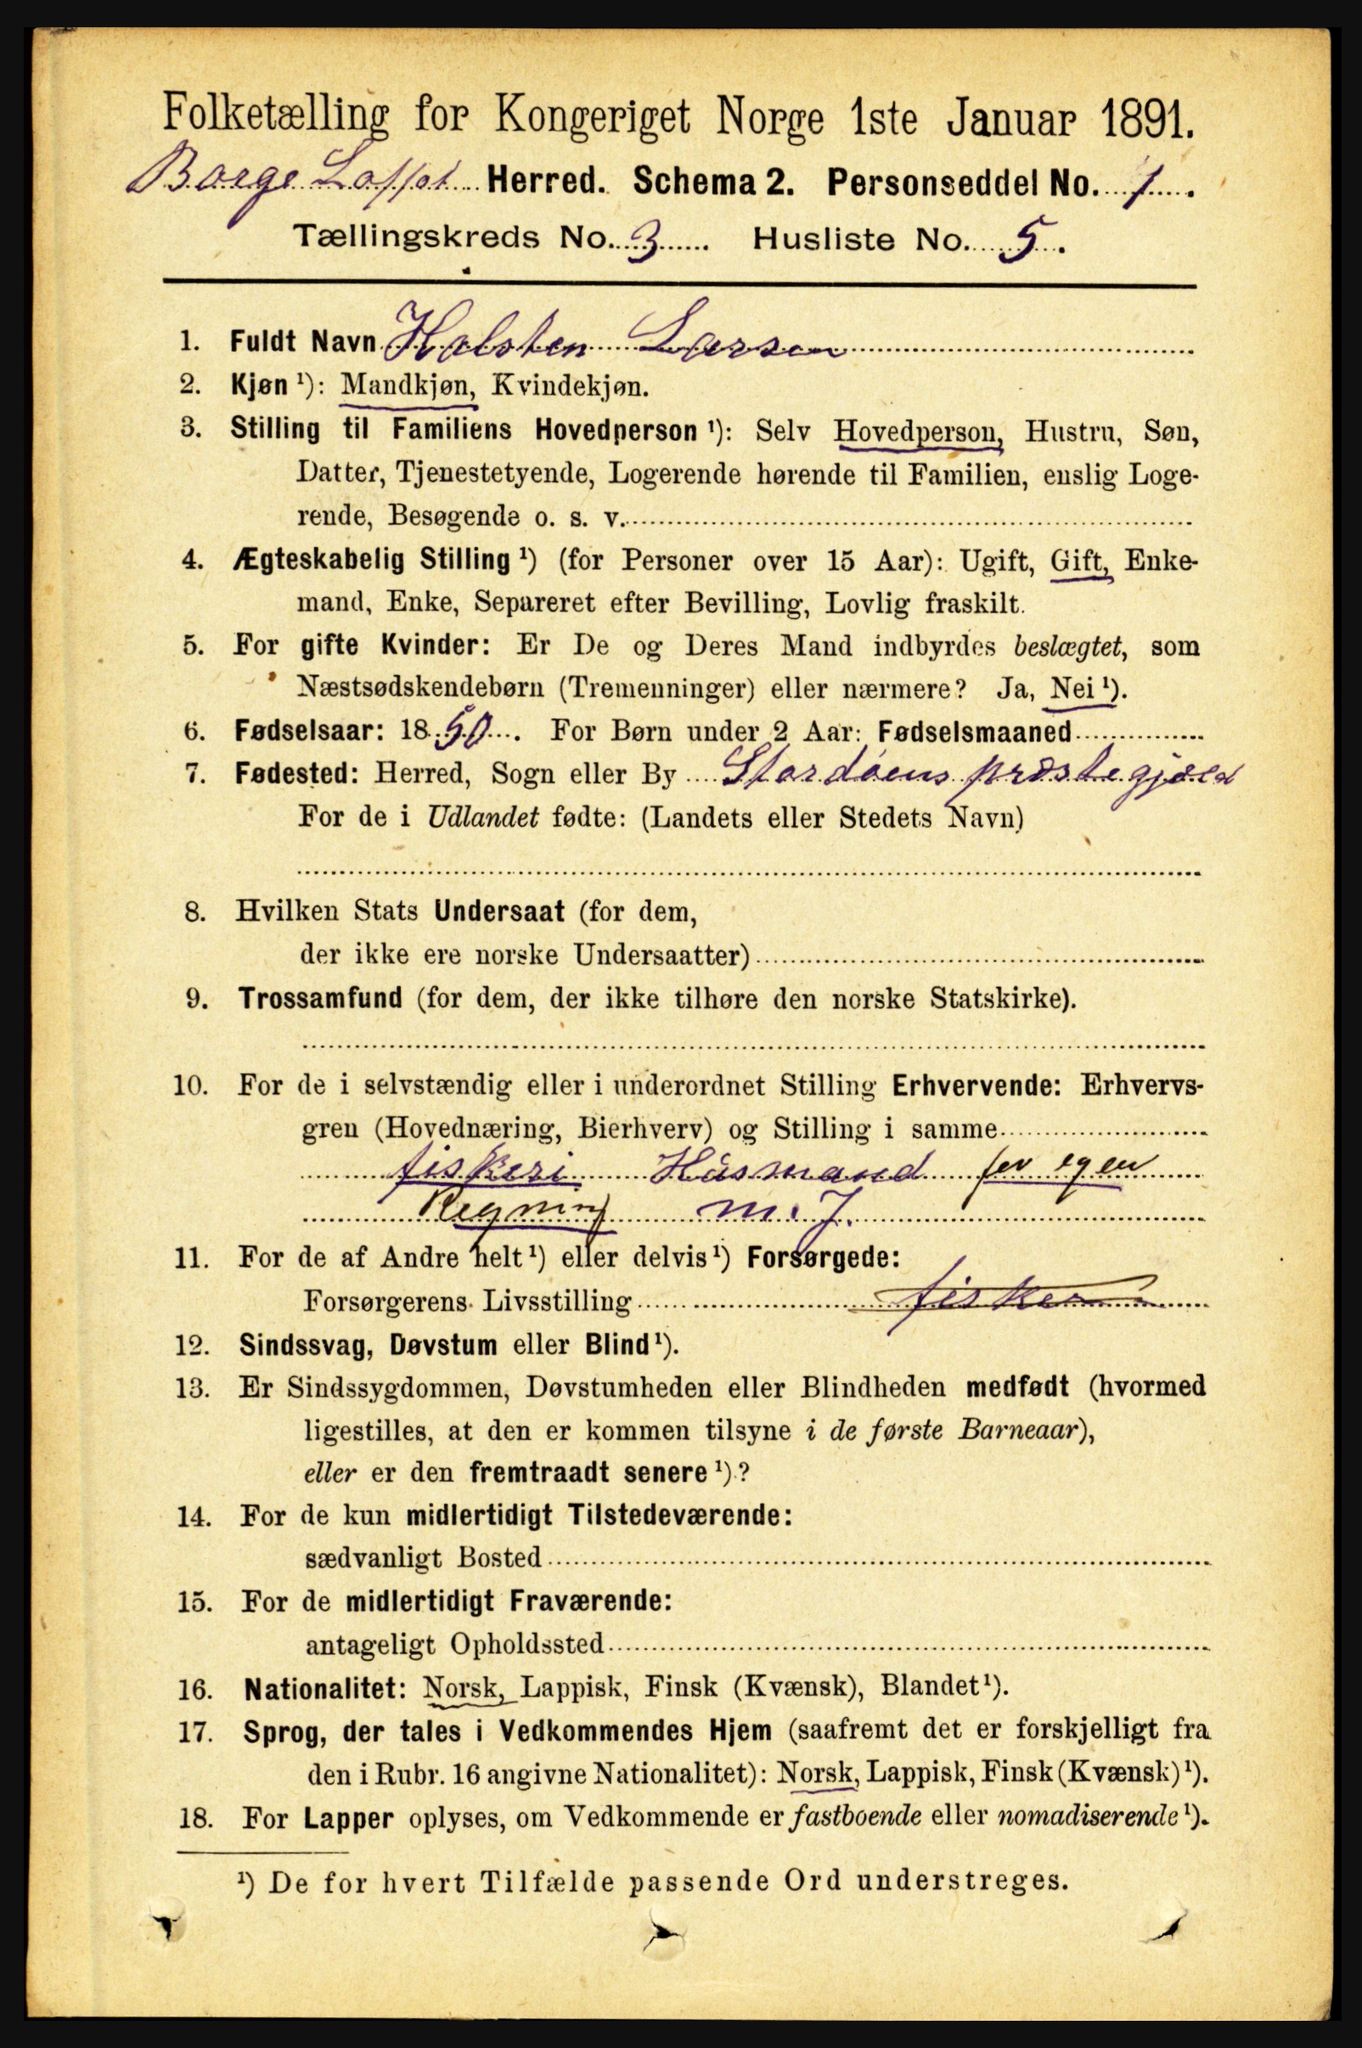 Folketælling for Kongeriget Norge 1ste Januar 1891.
Borge Herred. Schema 2. Personseddel No. 1.
Tællingskreds No. 3 Husliste No. 5.
1. Fuldt Navn Halsten Larsen
2. Kjøn ¹): Mandkjøn, Kvindekjøn.
3. Stilling til Familiens Hovedperson ¹): Selv Hovedperson, Hustru, Søn,
Datter, Tjenestetyende, Logerende hørende til Familien, enslig Loge-
rende, Besøgende o. s. v.
4. Ægteskabelig Stilling ¹) (for Personer over 15 Aar): Ugift, Gift, Enke-
mand, Enke, Separeret efter Bevilling, Lovlig fraskilt.
5. For gifte Kvinder: Er De og Deres Mand indbyrdes beslægtet, som
Næstsødskendebørn (Tremenninger) eller nærmere? Ja, Nei ¹).
6. Fødselsaar: 1850. For Børn under 2 Aar: Fødselsmaaned
7. Fødested: Herred, Sogn eller By Stordøens præstegjæld
For de i Udlandet fødte: (Landets eller Stedets Navn)
8. Hvilken Stats Undersaat (for dem,
der ikke ere norske Undersaatter)
9. Trossamfund (for dem, der ikke tilhøre den norske Statskirke).
10. For de i selvstændig eller i underordnet Stilling Erhvervende: Erhvervs-
gren (Hovednæring, Bierhverv) og Stilling i samme
fiskeri Husmand for egen
Regning m. J.
11. For de af Andre helt ¹) eller delvis ¹) Forsørgede:
Forsørgerens Livsstilling fisker
12. Sindssvag, Døvstum eller Blind ¹).
13. Er Sindssygdommen, Døvstumheden eller Blindheden medfødt (hvormed
ligestilles, at den er kommen tilsyne i de første Barneaar),
eller er den fremtraadt senere ¹)?
14. For de kun midlertidigt Tilstedeværende:
sædvanligt Bosted
15. For de midlertidigt Fraværende:
antageligt Opholdssted
16. Nationalitet: Norsk, Lappisk, Finsk (Kvænsk), Blandet ¹).
17. Sprog, der tales i Vedkommendes Hjem (saafremt det er forskjelligt fra
den i Rubr. 16 angivne Nationalitet): Norsk, Lappisk, Finsk (Kvænsk) ¹).
18. For Lapper oplyses, om Vedkommende er fastboende eller nomadiserende ¹).
¹) De for hvert Tilfælde passende Ord understreges.